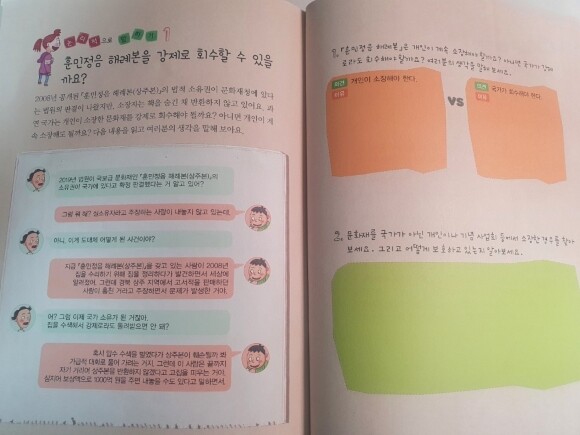 논리적으로 말하기 1
훈민정음 해례본을 강제로 회수할 수 있을
까요?
2008년 공개된 『훈민정음 해례본(상주본)』의 법적 소유권이 문화재청에 있다
는 법원의 판결이 나왔지만, 소장자는 책을 숨긴 채 반환하지 않고 있어요. 과
연 국가는 개인이 소장한 문화재를 강제로 회수해야 될까요? 아니면 개인이 계
속 소장해도 될까요? 다음 내용을 읽고 여러분의 생각을 말해 보아요.
2019년 법원이 국보급 문화재인 『훈민정음 해례본(상주본)』의
소유권이 국가에 있다고 확정 판결했다는 거 알고 있어?
그럼 뭐 해? 실소유자라고 주장하는 사람이 내놓지 않고 있는데.
아니, 이게 도대체 어떻게 된 사건이야?
지금 『훈민정음 해례본(상주본)』를 갖고 있는 사람이 2008년
집을 수리하기 위해 짐을 정리했다가 발견하면서 세상에
알려졌어. 그런데 경북 상주 지역에서 고서적을 판매하던
사람이 훔친 거라고 주장하면서 문제가 발생한 거야.
어? 그럼 이제 국가 소유가 된 거잖아.
집을 수색해서 강제로라도 돌려받으면 안 돼?
혹시 압수 수색을 벌였다가 상주본이 훼손될까 봐
가급적 대화로 풀어 가려는 거지. 그런데 이 사람은 끝까지
자기 거라며 상주본을 반환하지 않겠다고 고집을 피우는 거야.
심지어 보상액으로 1000억 원을 주면 내놓을 수도 있다고 말하면서.
1. 『훈민정음 해례본』은 개인이 계속 소장해야 할까요? 아니면 국가가 강제
로라도 회수해야 할까요? 여러분의 생각을 말해 보세요.
의견 개인이 소장해야 한다.
이유
VS
의견 국가가 회수해야 한다.
이유
2. 문화재를 국가가 아닌 개인이나 기념 사업회 등에서 소장한 경우를 찾아
보세요. 그리고 어떻게 보호하고 있는지 알아보세요.